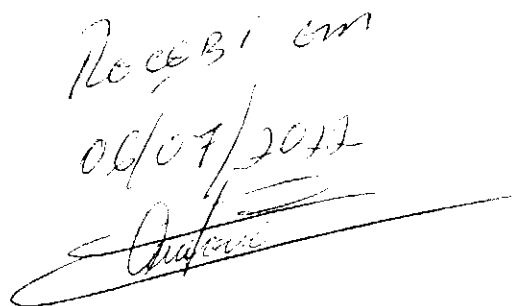 Recebi em
06/07/2012